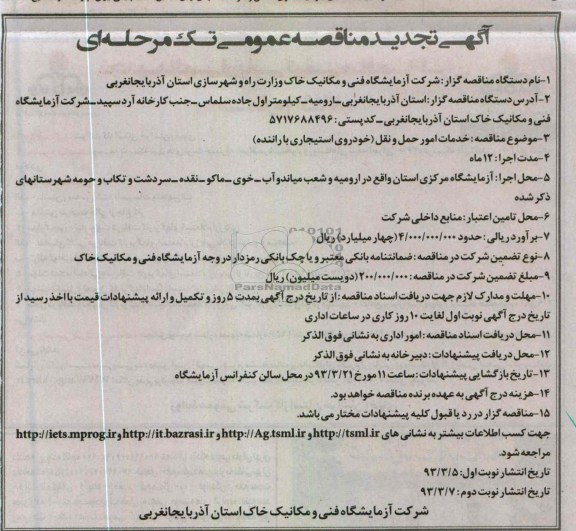 آگهی تجدید مناقصه عمومی تک مرحله‌ای
۱-نام دستگاه مناقصه گزار: شرکت آزمایشگاه فنی و مکانیک خاک وزارت راه و شهرسازی استان آذربایجانغربی
۲-آدرس دستگاه مناقصه گزار: استان آذربایجانغربی-ارومیه-کیلومتر اول جاده سلماس-جنب کارخانه آرد سپید-شرکت آزمایشگاه
فنی و مکانیک خاک استان آذربایجانغربی-کدپستی: ۵۷۱۷۶۸۸۴۹۶
۳-موضوع مناقصه: خدمات امور حمل و نقل (خودروی استیجاری با راننده)
۴-مدت اجرا: ۱۲ ماه
۵-محل اجرا: آزمایشگاه مرکزی استان واقع در ارومیه و شعب میاندوآب-خوی-ماکو-نقده-سردشت و تکاب و حومه شهرستانهای
ذکر شده
۶-محل تامین اعتبار: منابع داخلی شرکت
۷-برآورد ریالی: حدود ۴/۰۰۰/۰۰۰/۰۰۰ (چهار میلیارد) ریال
۸-نوع تضمین شرکت در مناقصه: ضمانتنامه بانکی معتبر و یا چک بانکی رمزدار در وجه آزمایشگاه فنی و مکانیک خاک
۹-مبلغ تضمین شرکت در مناقصه: ۲۰۰/۰۰۰/۰۰۰ (دویست میلیون) ریال
ParsNamadData
۱۰-مهلت و مدارک لازم جهت دریافت اسناد مناقصه: از تاریخ درج آگهی بمدت ۵ روز و تکمیل و ارائه پیشنهادات قیمت با اخذ رسید از
تاریخ درج آگهی نوبت اول لغایت ۱۰ روز کاری در ساعات اداری
۱۱-محل دریافت اسناد مناقصه: امور اداری به نشانی فوق الذکر
۱۲-محل دریافت پیشنهادات: دبیرخانه به نشانی فوق الذکر
۱۳-تاریخ بازگشایی پیشنهادات: ساعت ۱۱ مورخ ۹۳/۳/۲۱ در محل سالن کنفرانس آزمایشگاه
۱۴-هزینه درج آگهی به عهده برنده مناقصه خواهد بود.
۱۵-مناقصه گزار در رد یا قبول کلیه پیشنهادات مختار می باشد.
جهت کسب اطلاعات بیشتر به نشانی های http://tsml.ir و http://Ag.tsml.ir و http://it.bazrasi.ir و http://iets.mprog.ir
مراجعه شود.
تاریخ انتشار نوبت اول: ۹۳/۳/۵
تاریخ انتشار نوبت دوم: ۹۳/۳/۷
شرکت آزمایشگاه فنی و مکانیک خاک استان آذربایجانغربی